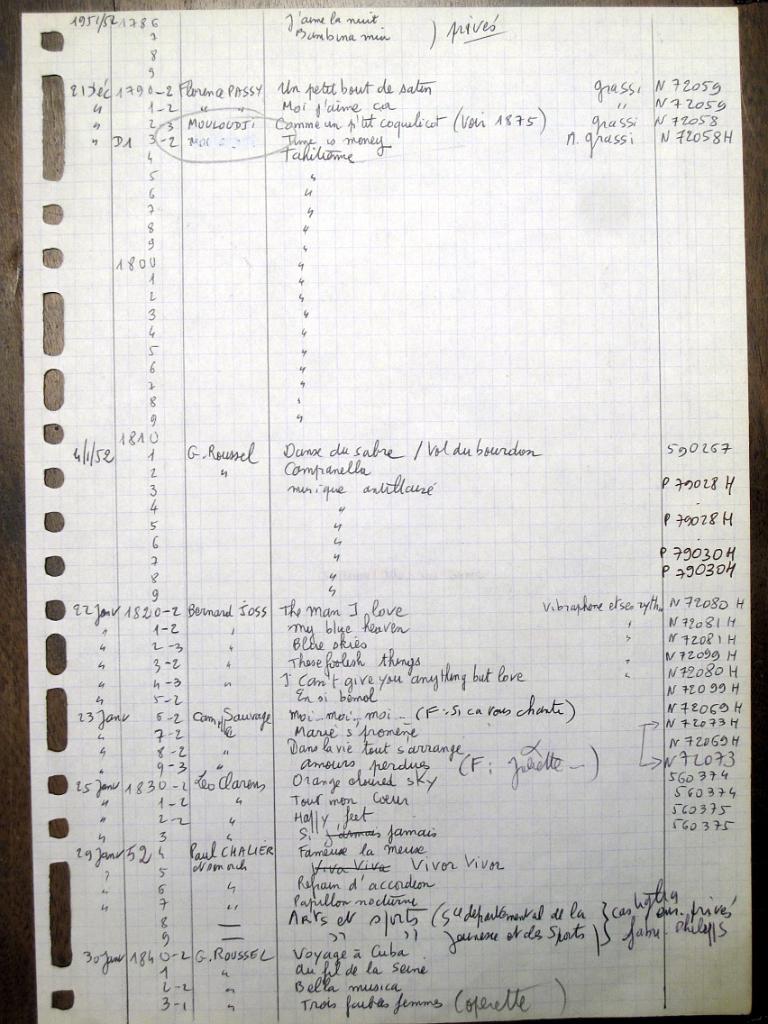 1951/52 1786 J'aime la nuit ) privés
7 Bambina min
8
9
21 Déc 1790-2 Florence PASSY Un petit bout de satin grassi N 72059
" 1-2 " " Moi j'aime ça " N 72059
" 2-3 MOULOUDJI Comme un p'tit coquelicot (Voir 1875) grassi N 72058
" D1 3-2 Time is money n. grassi N 72058H
4
5 "
6 "
7 "
8 "
9 "
1800 "
1 "
2 "
3 "
4 "
5 "
6 "
7 "
8 "
9 "
1810
4/1/52 1 G. Roussel Danse du sabre / Vol du bourdon 590267
2 " Campanella
3 musique antillaise P 79028 H
4 "
5 " P 79028 H
6 "
7 " P 79030 H
8 " P 79030H
9 "
22 Janv 1820-2 Bernard JOSS The man I love Vibraphone et ses ryth. N 72080 H
" 1-2 " my blue heaven " N 72081 H
" 2-3 " Blue skies " N 72081 H
" 3-2 " These foolish things " N 72099 H
" 4-3 " I can't give you anything but love N 72080 H
" 5-2 En si bémol N 72099 H
23 Janv 6-2 Cam. Sauvage Moi.. moi.. moi.. (F: Si ça vous chante) N 72069 H
" 7-2 " Margé s'promène N 72073 H
" 8-2 " Dans la vie tout s'arrange N 72069 H
" 9-3 " amours perdues (F: Juliette --) N 72073
25 Janv 1830-2 Leo Clarens Orange coloured sky 560374
" 1-2 " Tout mon Coeur 560374
" 2-2 " Happy feet 560375
" 3 " Si jamais jamais 560375
29 Janv 52 4 Paul CHALIER Fameuse la meuse
" 5 Viva Viva Vivor Vivor
" 6 " Refrain d'accordeon
" 7 " Papillon nocturne
8 = Arts et sports (Sce départemental de la
9 = " " Jeunesse et des Sports) privés
30 Janv 1840-2 G. ROUSSEL Voyage à Cuba
1 " Au fil de la Seine
2-2 " Bella musica
3-1 " Trois faibles femmes (operette)